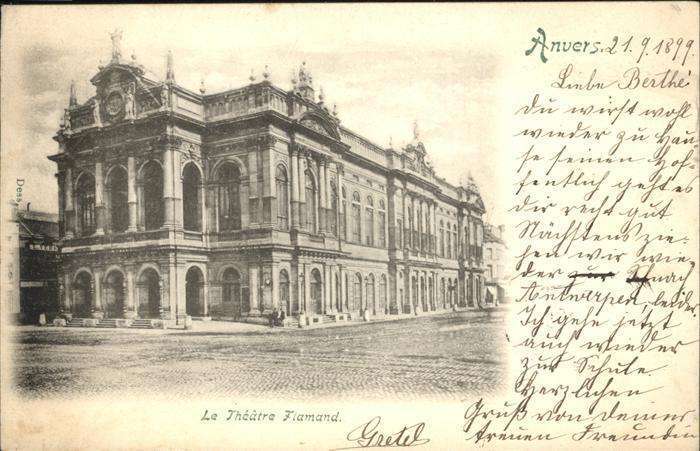 Anvers. 21. 9. 1899.
Liebe Berthe
Du wirst wohl
wieder zu Hau-
se seinen. Hof-
fentlich geht es
dir recht gut
Nächstens zie-
hen wir wie-
der nach
Antwerpen, leider.
Ich gehe jetzt
auch wieder
zur Schule
Herzlichen
Gruß von deiner
treuen Freundin
Gretel
Le Théâtre Flamand.
Dess